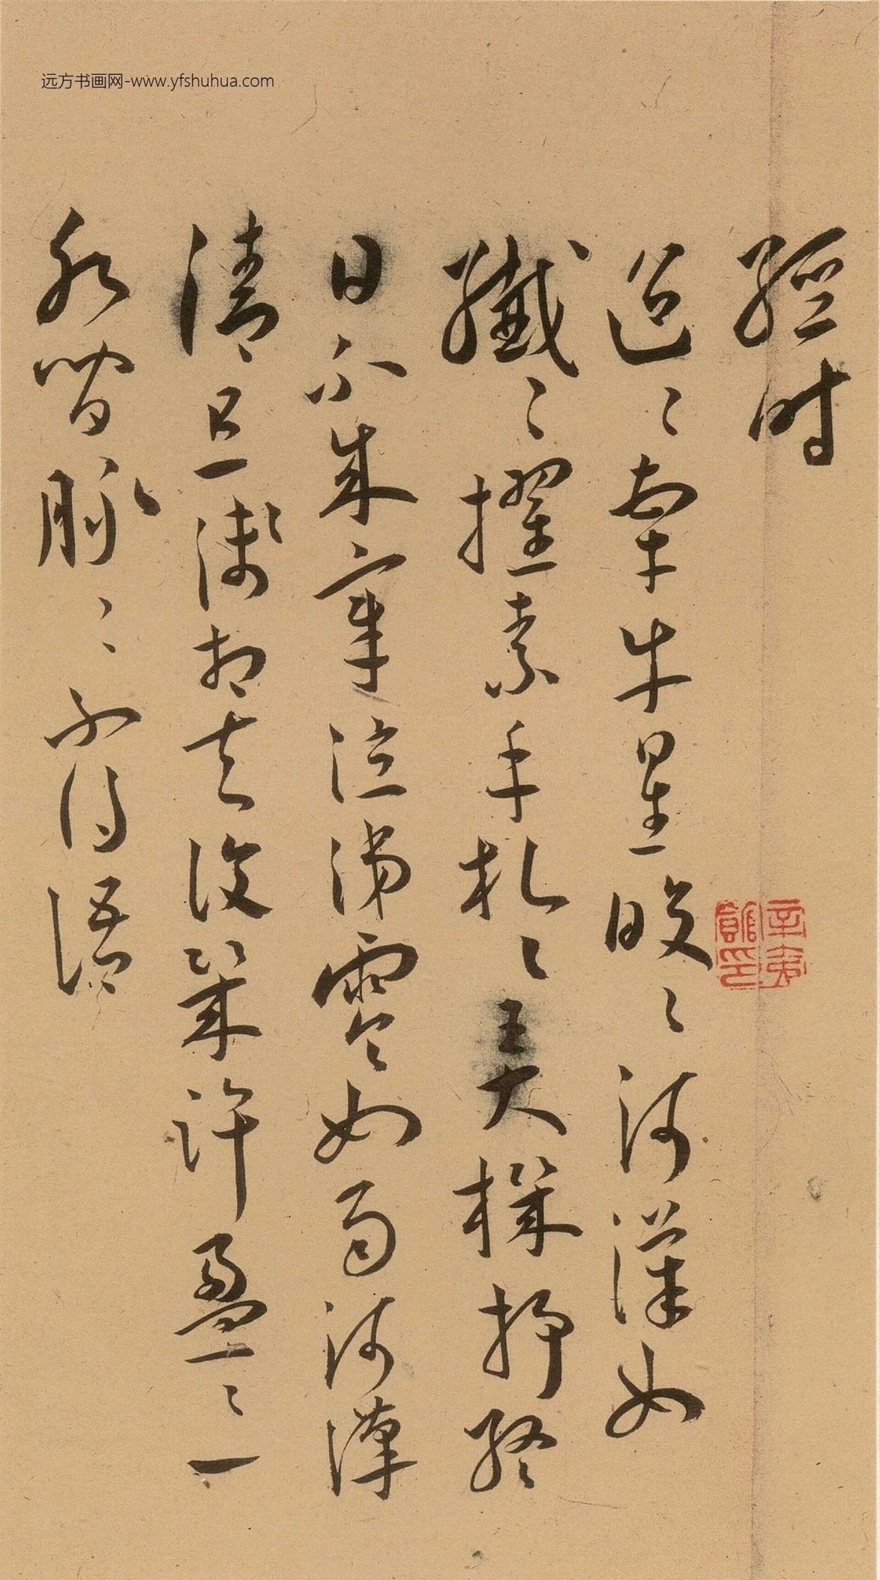 远方书画网-www.yfshuhua.com
經时
迢〻牽牛星皎〻河漢女
纖〻擢素手札〻弄機杼終
日不成章泣涕零如雨河漢
清且淺相去復幾許盈〻一
水間脉〻不得語
辛夷館印